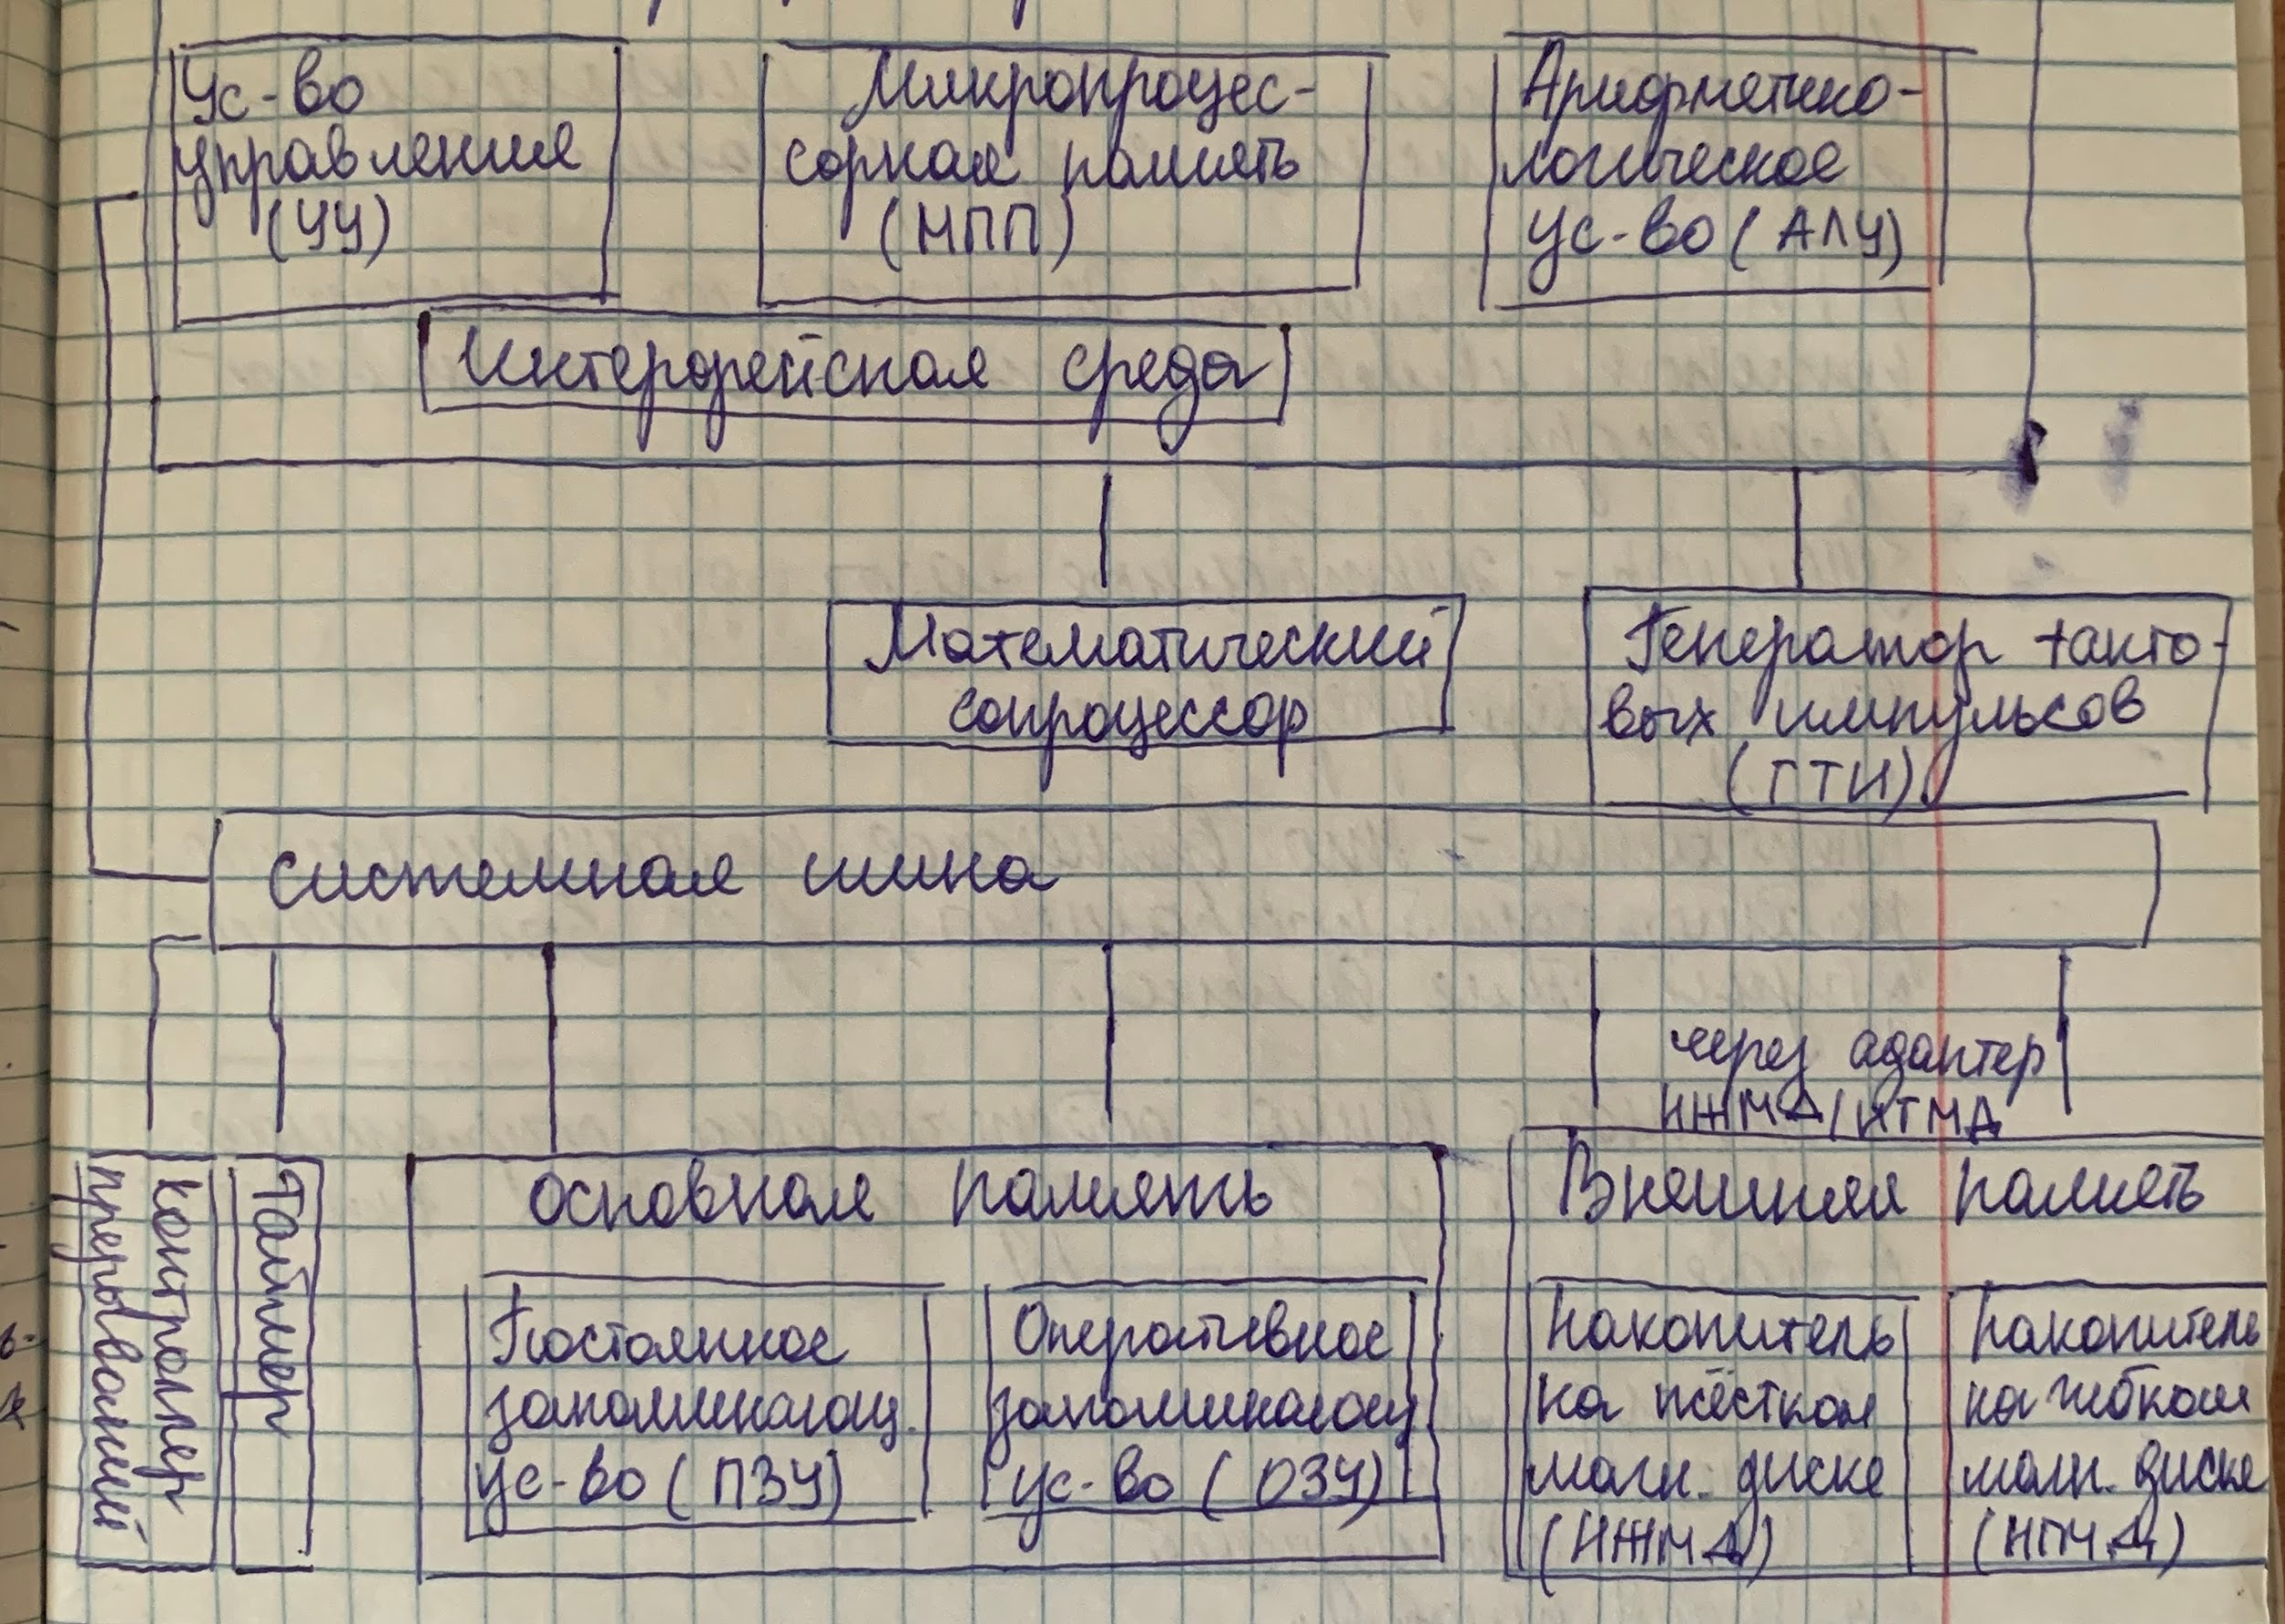 Ус-во
управления
(УУ)
Микропроцес-
сорная память
(МПП)
Арифметико-
логическое
ус-во (АЛУ)
Интерфейсная среда
Математический
сопроцессор
Генератор такто-
вых импульсов
(ГТИ)
системная шина
через адаптер
НЖМД/НГМД
контроллер
прерываний
Таймер
основная память
Постоянное
запоминающ.
ус-во (ПЗУ)
Оперативное
запоминающ.
ус-во (ОЗУ)
Внешняя память
Накопитель
на жёстком
магн. диске
(НЖМД)
Накопитель
на гибком
магн. диске
(НГМД)